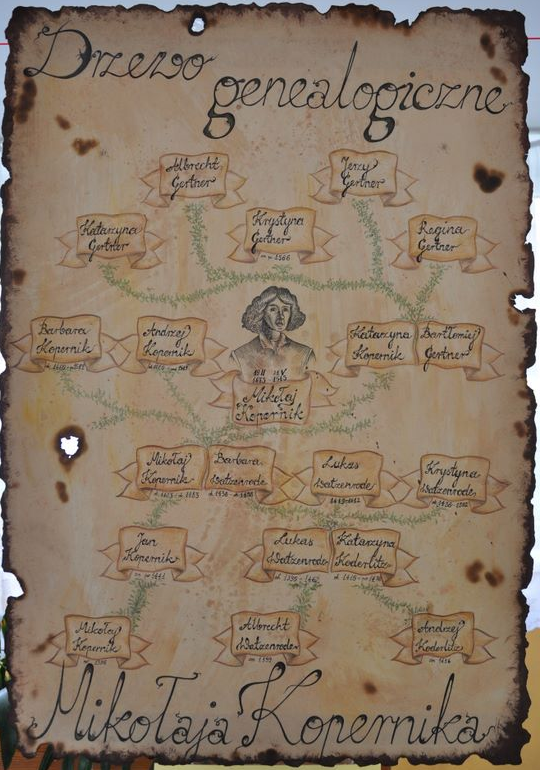 Drzewo
genealogiczne
Albrecht
Gertner
Jerzy
Gertner
Katarzyna
Gertner
Krystyna
Gertner
Regina
Gertner
Barbara
Kopernik
Andrzej
Kopernik
Katarzyna
Kopernik
Bartłomiej
Gertner
Mikołaj
Kopernik
Mikołaj
Kopernik
Barbara
Watzenrode
Lukas
Watzenrode
Krystyna
Watzenrode
Jan
Kopernik
Lukas
Watzenrode
Katarzyna
Koderlitz
Mikołaj
Kopernik
Albrecht
Watzenrode
Andrzej
Koderlitz
Mikołaja Kopernika